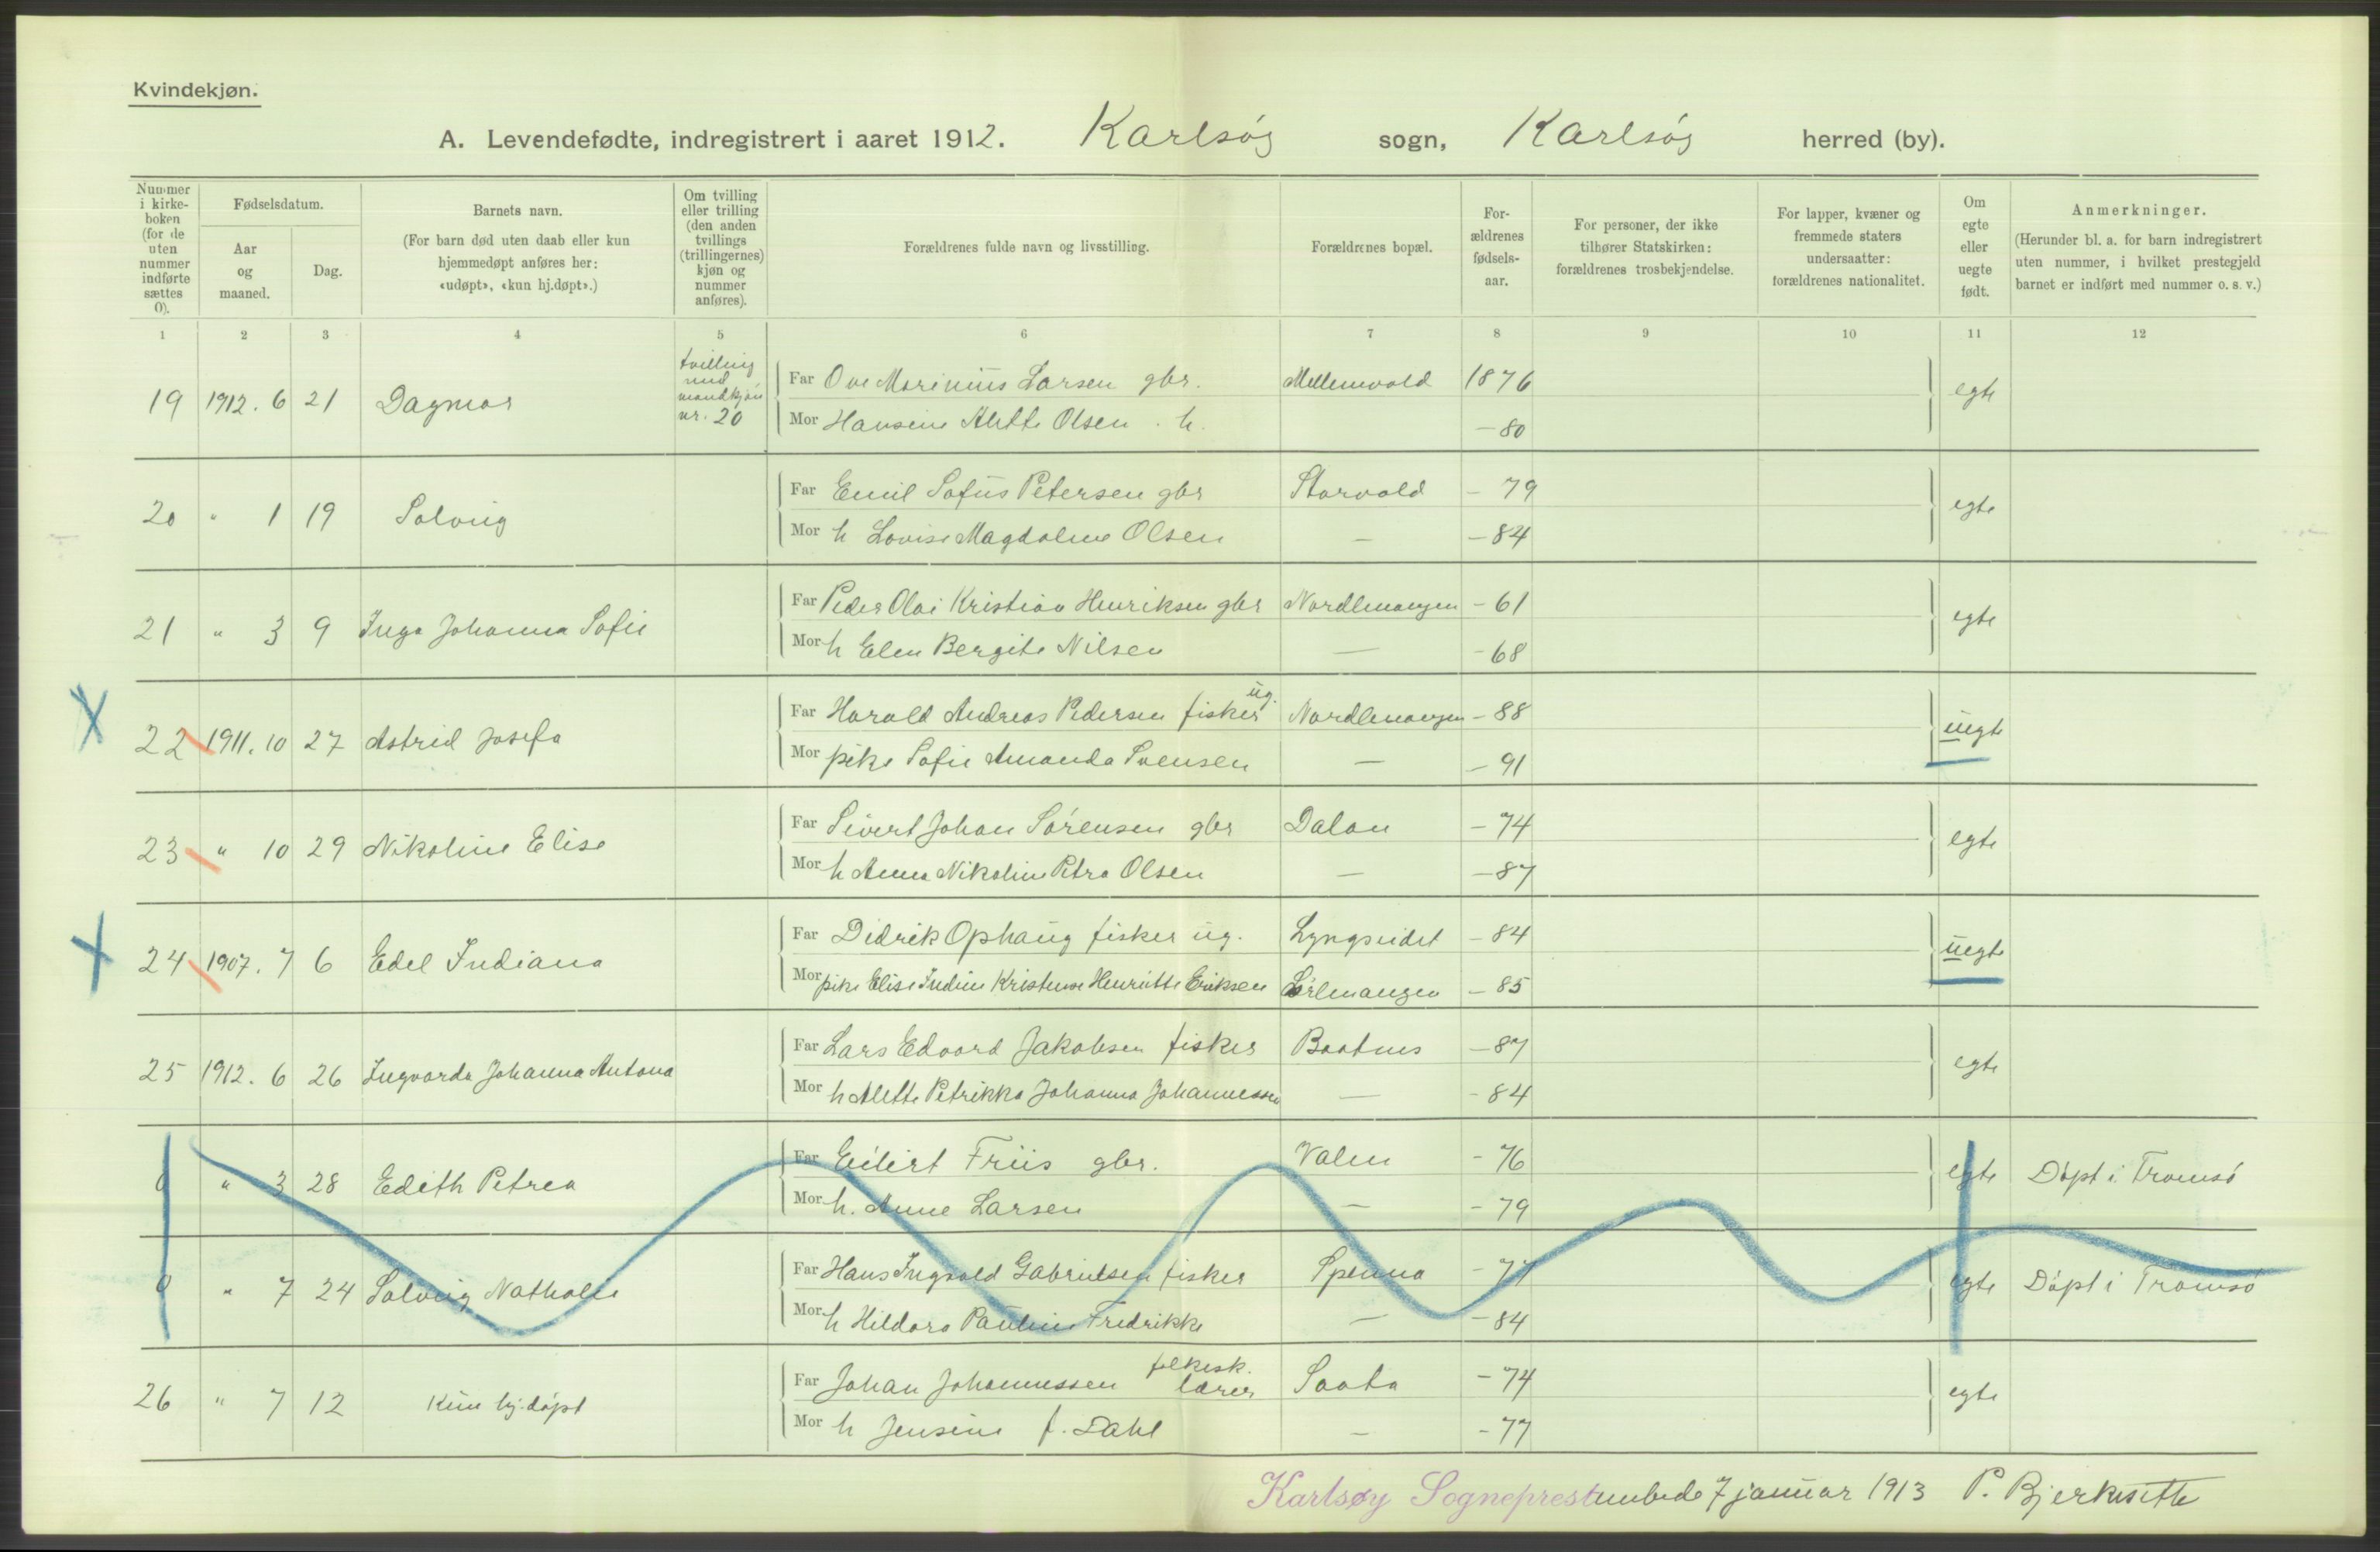 Kvindekjøn.
A. Levendefødte, indregistrert i aaret 1912. Karlsöy sogn, Karlsöy herred (by).
Nummer i kirke-boken (for de uten nummer indførte sættes 0).
Fødselsdatum.
Aar og maaned.
Dag.
Barnets navn.
(For barn død uten daab eller kun hjemmedøpt anføres her: «udøpt», «kun hj.døpt».)
Om tvilling eller trilling (den anden tvillings (trillingernes) kjøn og nummer anføres).
Forældrenes fulde navn og livsstilling.
Forældrenes bopæl.
For-ældrenes fødsels-aar.
For personer, der ikke tilhører Statskirken: forældrenes trosbekjendelse.
For lapper, kvæner og fremmede staters undersaatter: forældrenes nationalitet.
Om egte eller uegte født.
Anmerkninger.
(Herunder bl. a. for barn indregistrert uten nummer, i hvilket prestegjeld barnet er indført med nummer o. s. v.)
1 2 3 4 5 6 7 8 9 10 11 12
19 1912. 6 21 Dagmar tvilling med mandkjön nr. 20 Far Ove Marinius Larsen gbr. Mellemvold 1876 egte
Mor Hansine Alette Olsen . h. – 80
20 " 1 19 Solveig Far Emil Sofus Petersen gbr Storvold – 79 egte
Mor h Lovise Magdalene Olsen — – 84
21 " 3 9 Inga Johanna Sofie Far Peder Olai Kristian Henriksen gbr Nordlenangen – 61 egte
Mor h Elen Bergite Nilsen — – 68
22 1911. 10 27 Astrid Josefa Far Harald Andreas Pedersen fisker ug. Nordlenangen – 88 uegte
Mor pike Sofie Amanda Svensen — – 91
23 " 10 29 Nikoline Elise Far Sivert Johan Sörensen gbr Dalan – 74 egte
Mor h Anna Nikoline Petra Olsen — – 87
24 1907. 7 6 Edel Indiana Far Didrik Ophaug fisker ug. Lyngseidet – 84 uegte
Mor pike Elise Indine Kristense Henriette Eriksen Sörlenangen – 85
25 1912. 6 26 Ingvarda Johanna Antona Far Lars Edvard Jakobsen fisker Baatnes – 87 egte
Mor h Alette Petrikka Johanna Johannessen — – 84
0 " 3 28 Edith Petrea Far Eilert Friis gbr. Valen – 76 egte Döpt i Tromsö
Mor h. Anne Larsen — – 79
0 " 7 24 Solveig Nathalie Far Hans Ingvald Gabrielsen fisker Spenna – 77 egte Döpt i Tromsö
Mor h Hildora Pauline Fredrikke — – 84
26 " 7 12 Kun hj. döpt Far Johan Johannessen folkesk. lærer Saata – 74 egte
Mor h Jensine f. Dahl — – 77
Karlsøy Sogneprestembede 7 januar 1913 P. Bjerkesette